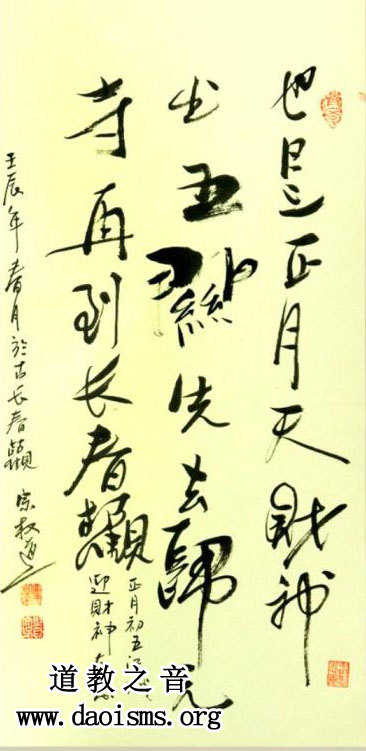 也是正月天财神
出五 先去歸元
寺再到长春觀
正月初五
迎財神有
壬辰年春月於古长春觀 宗
道教之音
www.daoisms.org